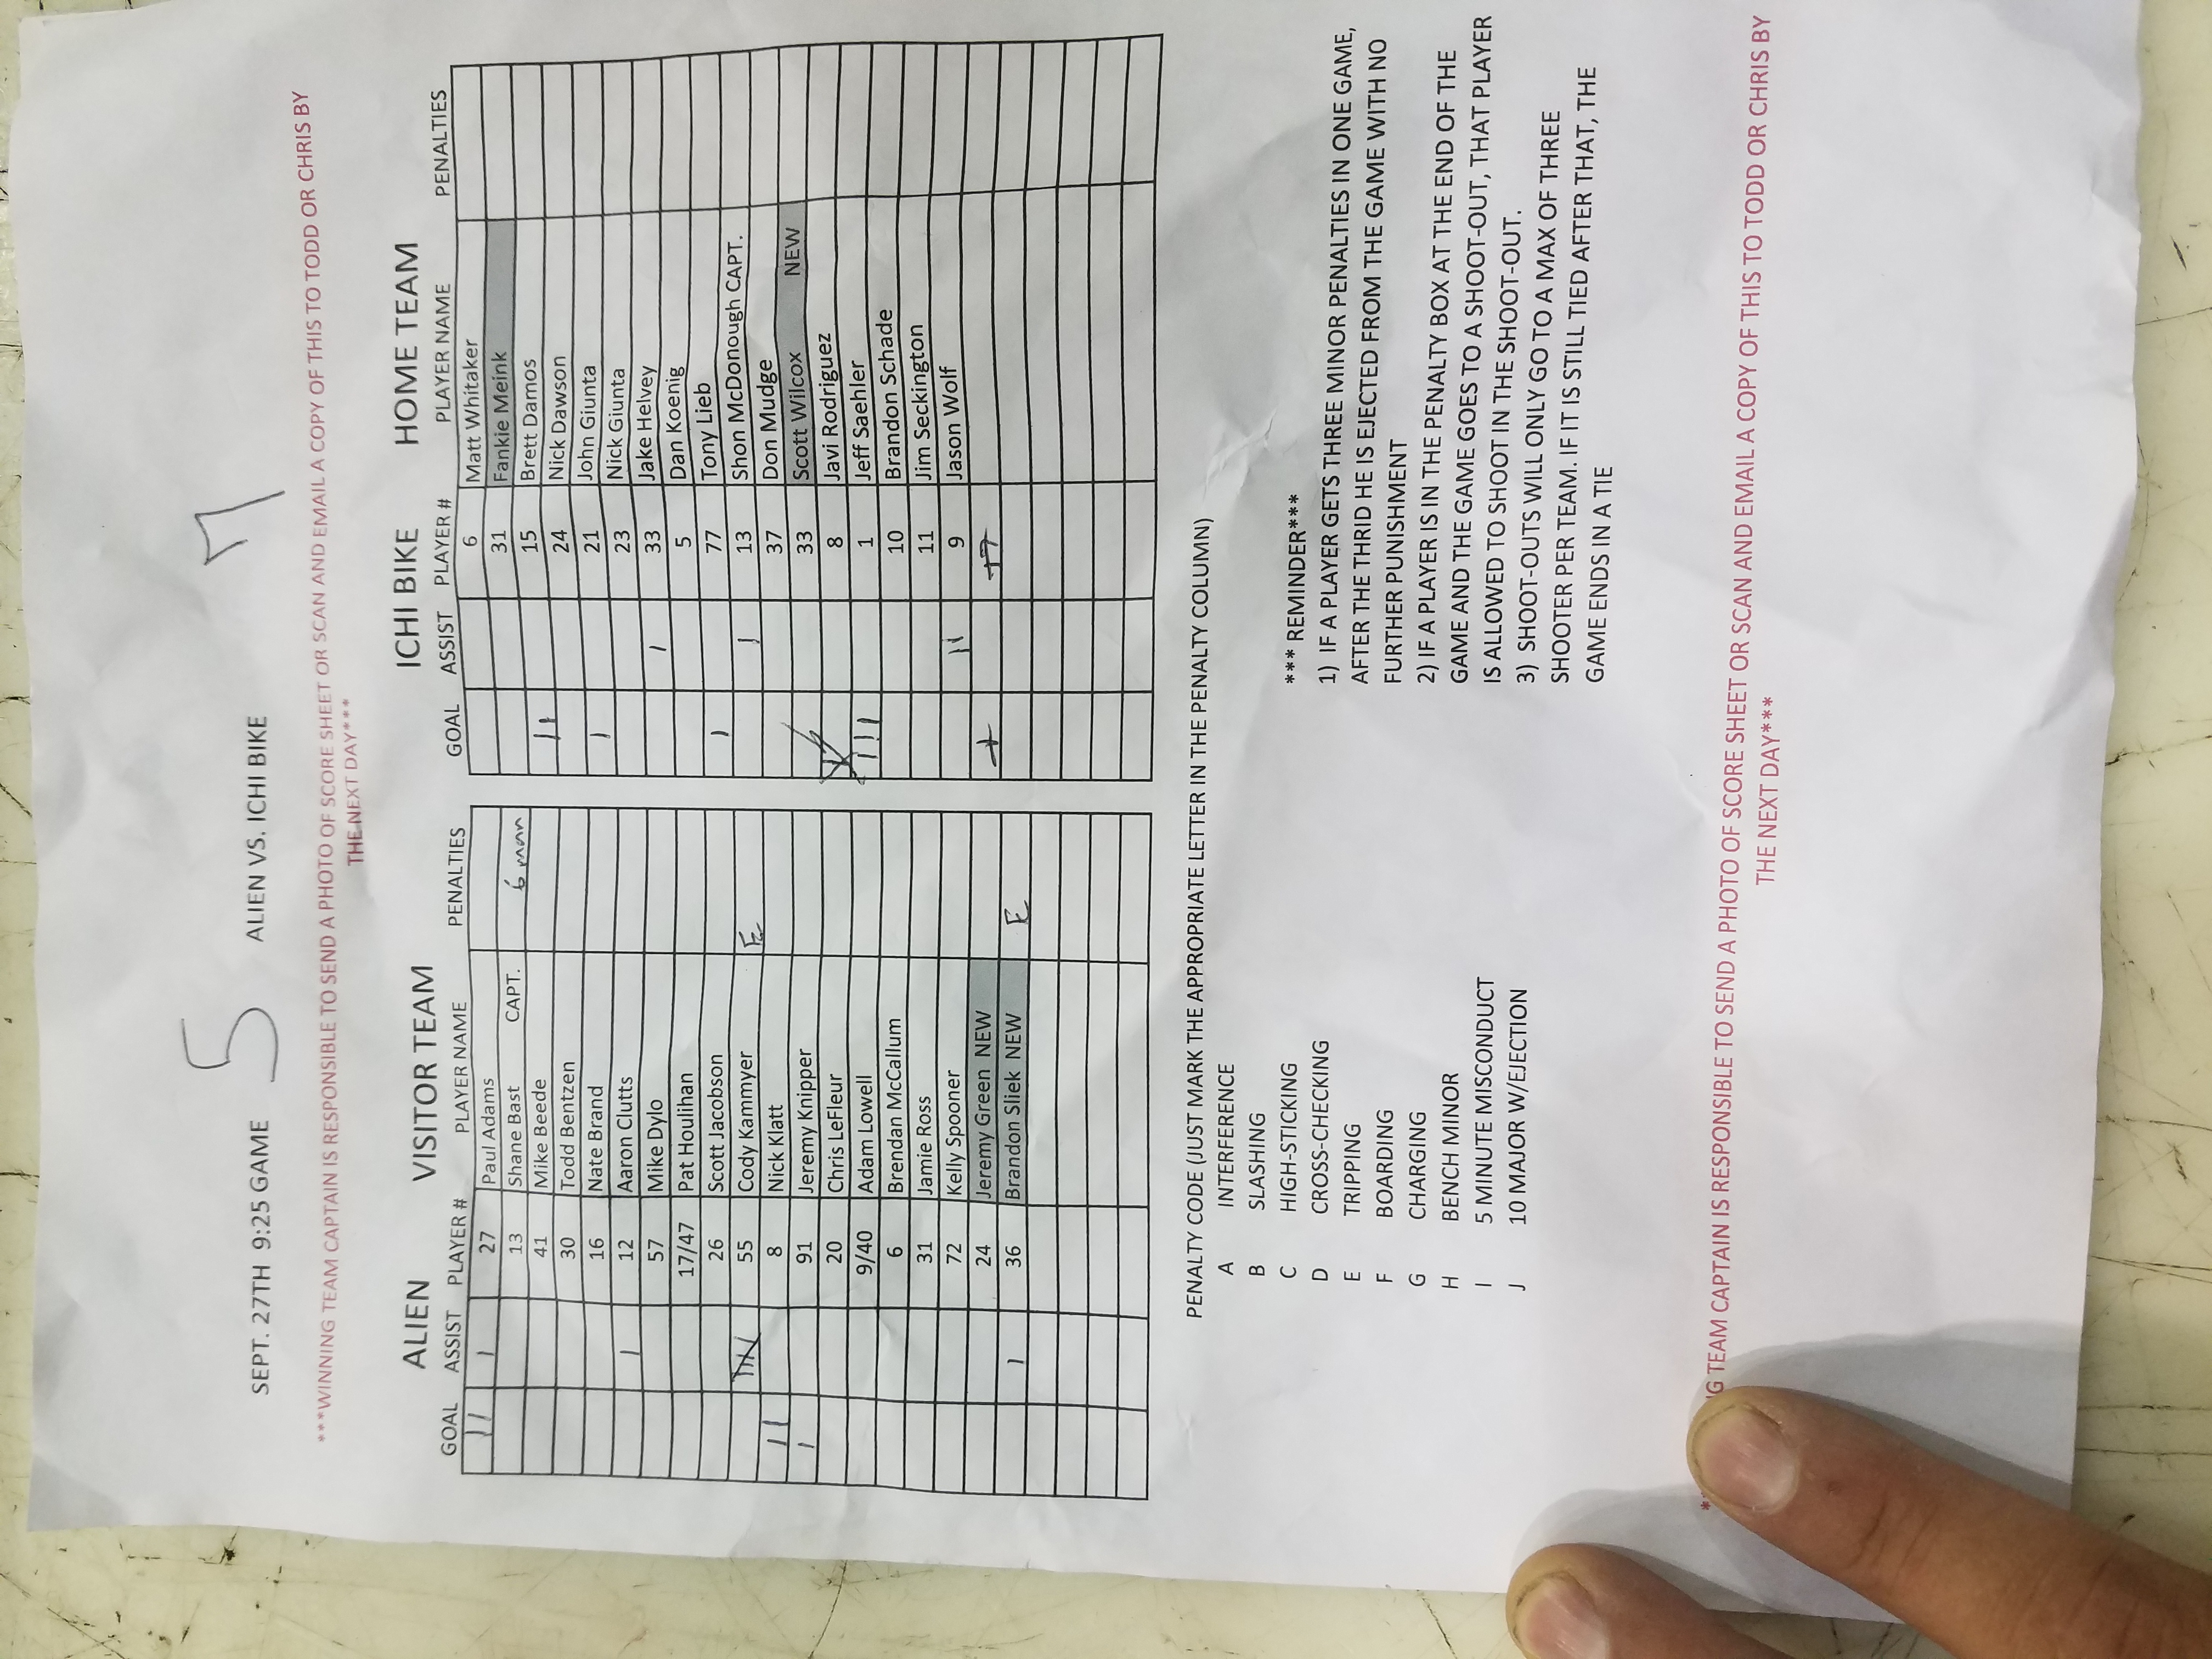 5 7
SEPT. 27TH 9:25 GAME ALIEN VS. ICHI BIKE
***WINNING TEAM CAPTAIN IS RESPONSIBLE TO SEND A PHOTO OF SCORE SHEET OR SCAN AND EMAIL A COPY OF THIS TO TODD OR CHRIS BY
THE NEXT DAY***
ALIEN VISITOR TEAM
GOAL ASSIST PLAYER # PLAYER NAME PENALTIES
11 1 27 Paul Adams
13 Shane Bast CAPT. 6 man
41 Mike Beede
30 Todd Bentzen
16 Nate Brand
1 12 Aaron Clutts
57 Mike Dylo
17/47 Pat Houlihan
26 Scott Jacobson
55 Cody Kammyer E
11 8 Nick Klatt
1 91 Jeremy Knipper
20 Chris LeFleur
9/40 Adam Lowell
6 Brendan McCallum
31 Jamie Ross
72 Kelly Spooner
24 Jeremy Green NEW
1 36 Brandon Sliek NEW E
ICHI BIKE HOME TEAM
GOAL ASSIST PLAYER # PLAYER NAME PENALTIES
6 Matt Whitaker
31 Fankie Meink
11 15 Brett Damos
24 Nick Dawson
1 21 John Giunta
23 Nick Giunta
1 33 Jake Helvey
5 Dan Koenig
1 77 Tony Lieb
1 13 Shon McDonough CAPT.
37 Don Mudge
33 Scott Wilcox NEW
8 Javi Rodriguez
111 1 Jeff Saehler
10 Brandon Schade
11 Jim Seckington
11 9 Jason Wolf
PENALTY CODE (JUST MARK THE APPROPRIATE LETTER IN THE PENALTY COLUMN)
A INTERFERENCE
B SLASHING
C HIGH-STICKING
D CROSS-CHECKING
E TRIPPING
F BOARDING
G CHARGING
H BENCH MINOR
I 5 MINUTE MISCONDUCT
J 10 MAJOR W/EJECTION
*** REMINDER***
1) IF A PLAYER GETS THREE MINOR PENALTIES IN ONE GAME,
AFTER THE THRID HE IS EJECTED FROM THE GAME WITH NO
FURTHER PUNISHMENT
2) IF A PLAYER IS IN THE PENALTY BOX AT THE END OF THE
GAME AND THE GAME GOES TO A SHOOT-OUT, THAT PLAYER
IS ALLOWED TO SHOOT IN THE SHOOT-OUT.
3) SHOOT-OUTS WILL ONLY GO TO A MAX OF THREE
SHOOTER PER TEAM. IF IT IS STILL TIED AFTER THAT, THE
GAME ENDS IN A TIE
TEAM CAPTAIN IS RESPONSIBLE TO SEND A PHOTO OF SCORE SHEET OR SCAN AND EMAIL A COPY OF THIS TO TODD OR CHRIS BY
THE NEXT DAY***